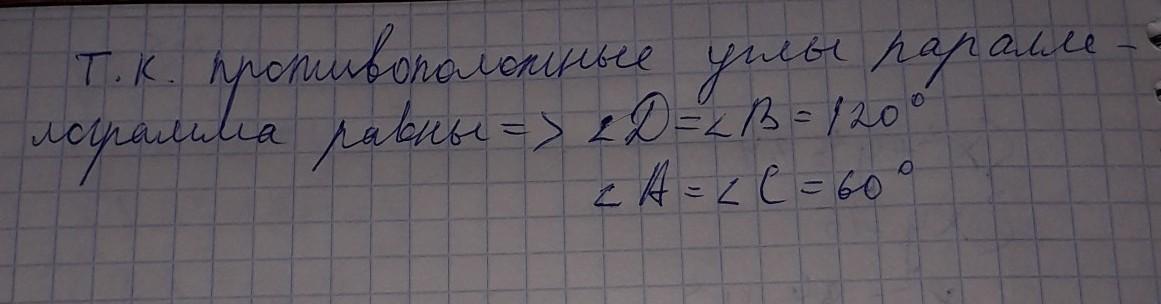 Т.к. противоположные углы паралле-
лограмма равны => ∠D=∠B=120°
∠A=∠C=60°